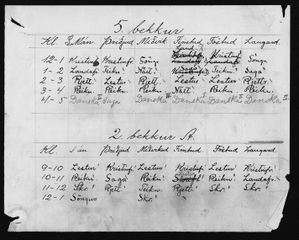 5. bekkur
Kl. Mán Þriðjud Miðvik Fimtud Föstud Laugard
12-1 Kristinfr Kristinfr Söng
1-2 Landafr Reikn Nátt. Saga
2-3 Rjett Lestur Rjett Lestur Rjett
3-4 Reikn Reikn. Nátt. Reikn. Reikn.
4-5 Danska Saga Danska Danska Danska Danska
2. bekkur A.
Kl. Mán Þriðjud Miðvikud Fimtud Föstud Laugard
9-10 Lestur Kristinfr. Lestur Kristinfr Lestur Kristinfr.
10-11 Reikn. Saga Reikn. Reikn. Landafr.
11-12 Skr. Rjett Reikn. Rjett Skr. Skr.
12-1 Söngur Skr.